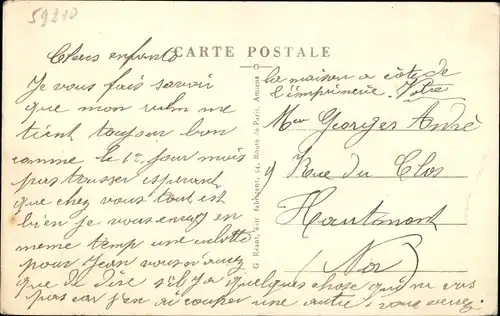 59210
CARTE POSTALE
Chers enfants
Je vous fais savoir
que mon ruhm me
tient toujour bon
comme le 1er jour mais
pas trousser esperant
que chez vous tout est
bien je vous envoy en
meme temp une culotte
pour Jean vous n'aurez
que de dire s'il y a quelques chose qui ne vas
pas car j'en ai couper une autre. vous verrez
la maison a côte de
l'imprimerie. Votre
G. Réant, édit Abbécant, 54, Route de Paris, Amiens
Mr Georges André
Rue du Clos
Hautmont
(Nor)